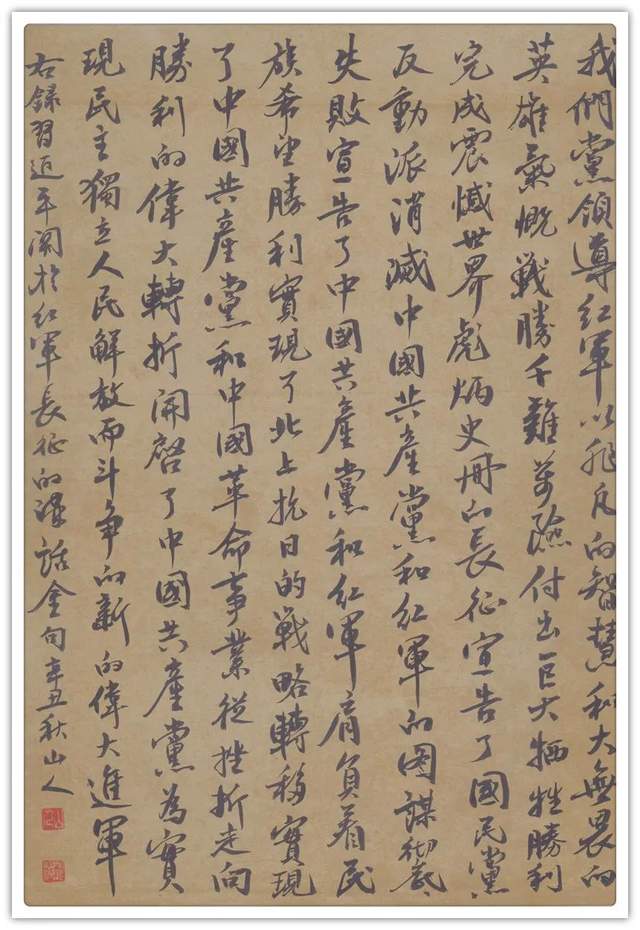 我們黨領導紅軍以非凡的智慧和大無畏的
英雄氣慨戰勝千難萬險付出巨大犧牲勝利
完成震憾世界彪炳史冊的長征宣告了國民黨
反動派消滅中國共產黨和紅軍的圖謀徹底
失敗宣告了中國共產黨和紅軍肩負着民
族希望勝利實現了北上抗日的戰略轉移實現
了中國共產黨和中國革命事業從挫折走向
勝利的偉大轉折開啓了中國共產黨為實
現民主獨立人民解放而斗争的新的偉大進軍
右錄習近平関於紅軍長征的講話金句辛丑秋山人